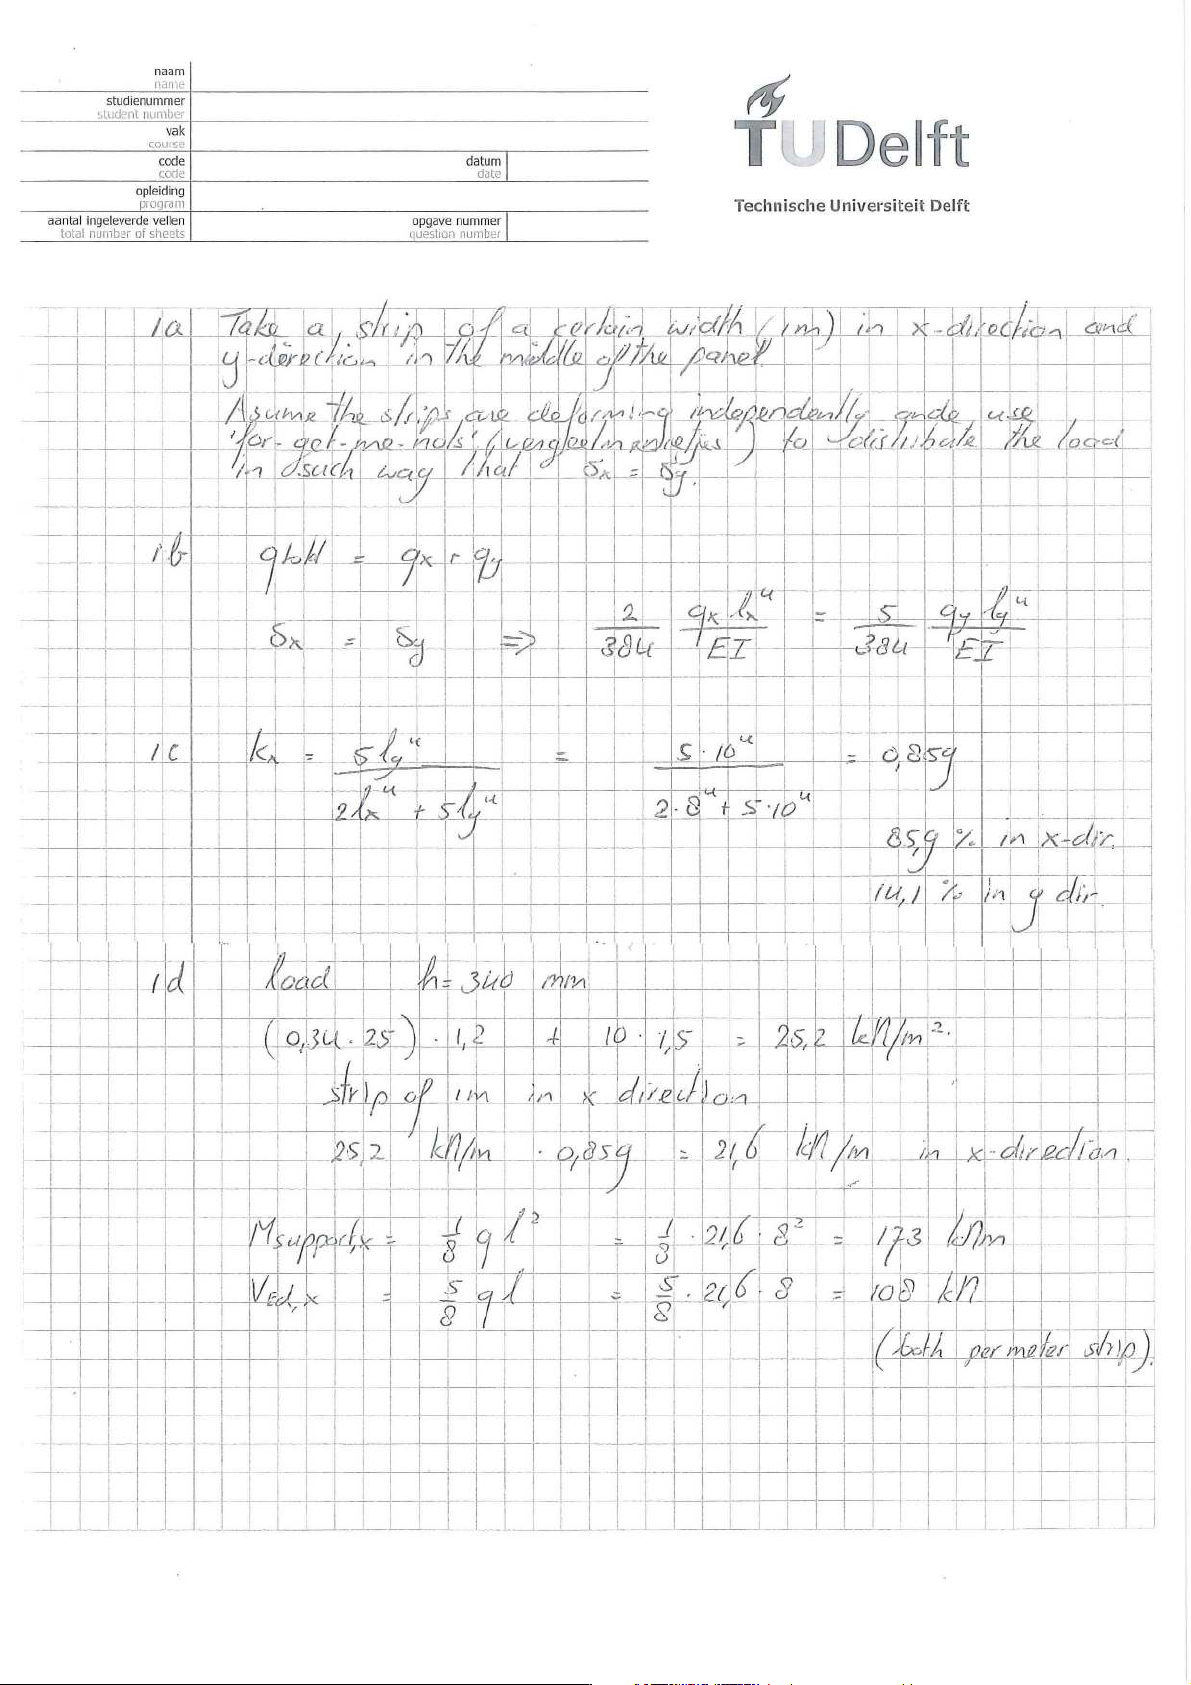 naam
name
studienummer
student number
vak
course
code
code
datum
date
opleiding
program
aantal ingeleverde vellen
total number of sheets
opgave nummer
question number
TUDelft
Technische Universiteit Delft
1a Take a strip of a certain width (1m) in x-direction and
y-direction in the middle of the panel
Asume the strips are deforming independently ande use
'for-get-me-nots' (vergeetmenietjes) to distribate the load
in such way that δx = δy.
1b qtotal = qx + qy
δx = δy => 2/384 qx lx⁴/EI = 5/384 qy ly⁴/EI
1c kx = 5ly⁴ / (2lx⁴ + 5ly⁴) = 5·10⁴ / (2·8⁴ + 5·10⁴) = 0,859
85,9 % in x-dir.
14,1 % in y dir.
1d load h=340 mm
(0,34·25)·1,2 + 10·1,5 = 25,2 kN/m².
strip of 1m in x direction
25,2 kN/m · 0,859 = 21,6 kN/m in x-direction.
Msupport,x = 1/8 q l² = 1/8 · 21,6 · 8² = 173 kNm
VEd,x = 5/8 q l = 5/8 · 21,6 · 8 = 108 kN
(both per meter strip).